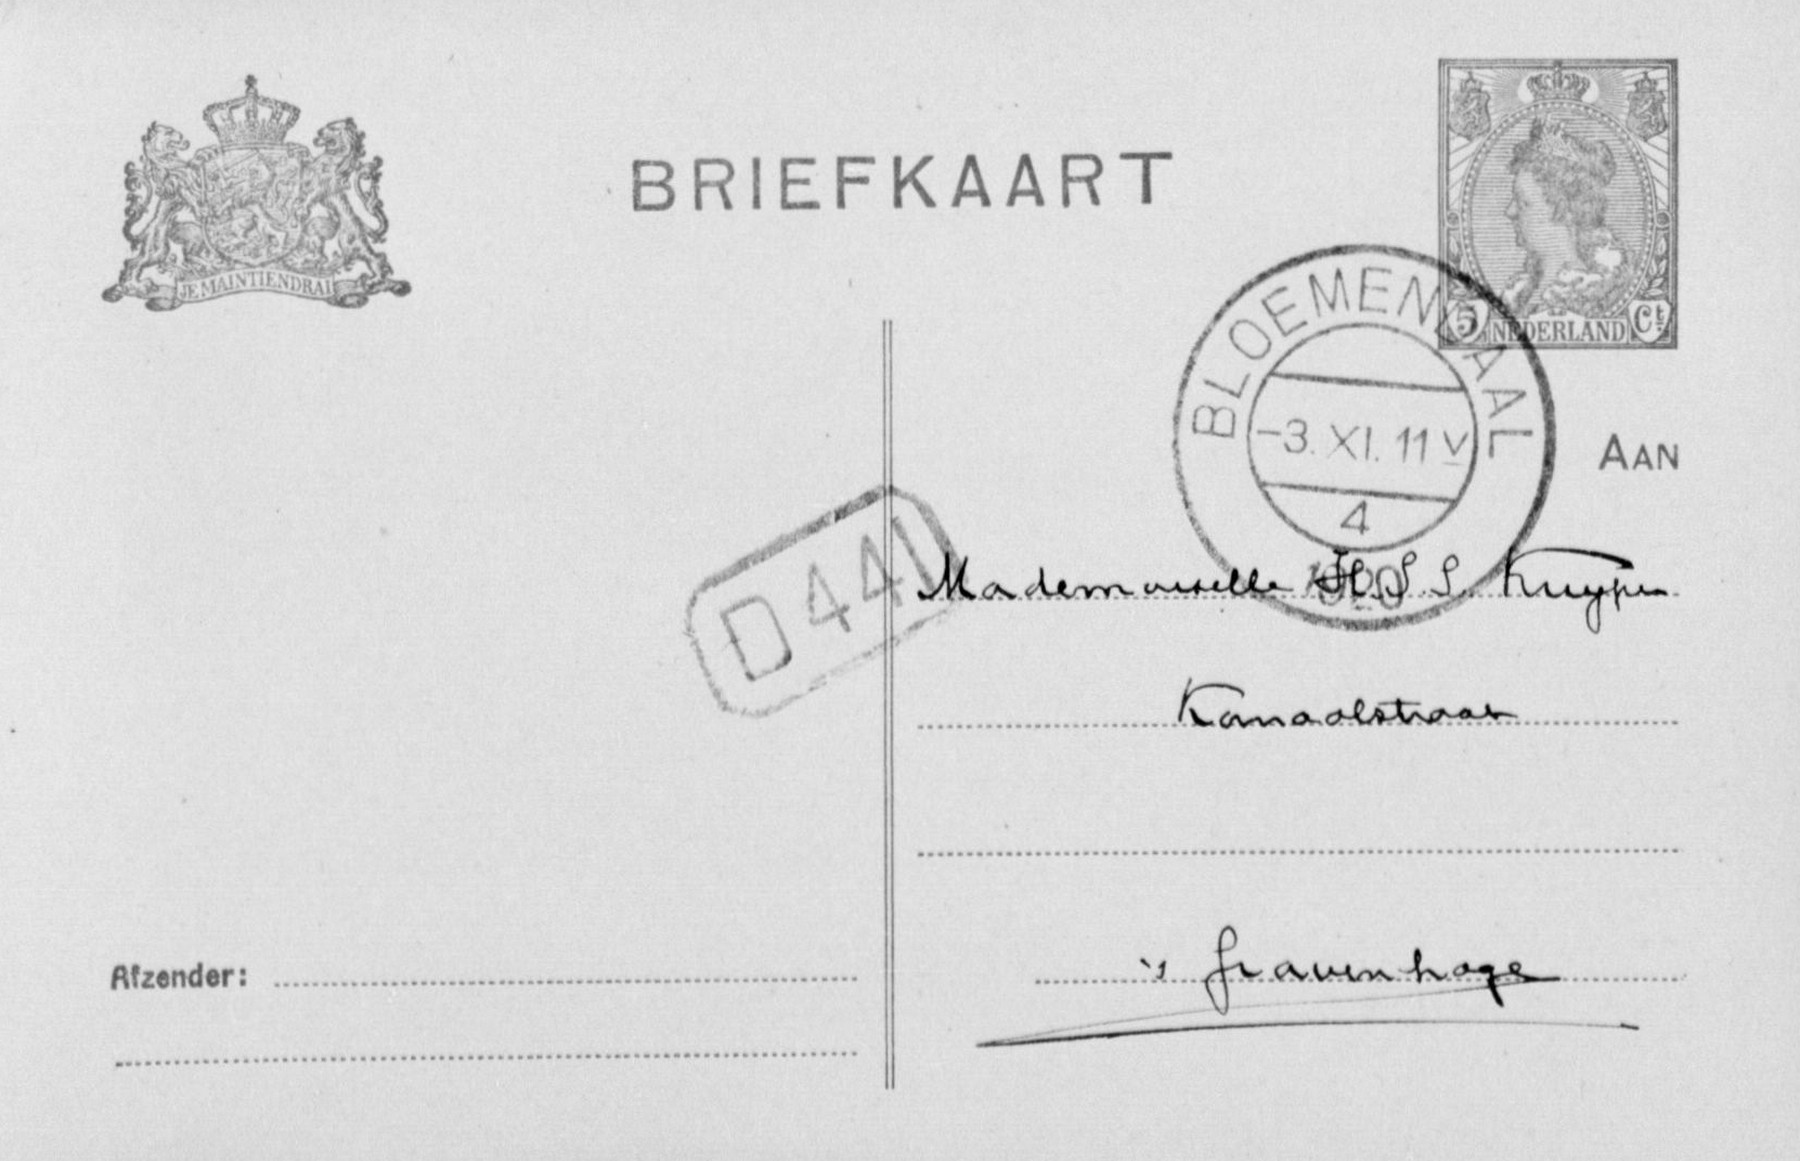 JE MAINTIENDRAI
BRIEFKAART
5 NEDERLAND Ct
BLOEMENDAAL
-3. XI. 11 V
4
1920
AAN
D 441
Mademoiselle H. S. S. Kuyper
Kanaalstraat
's Gravenhage
Afzender: